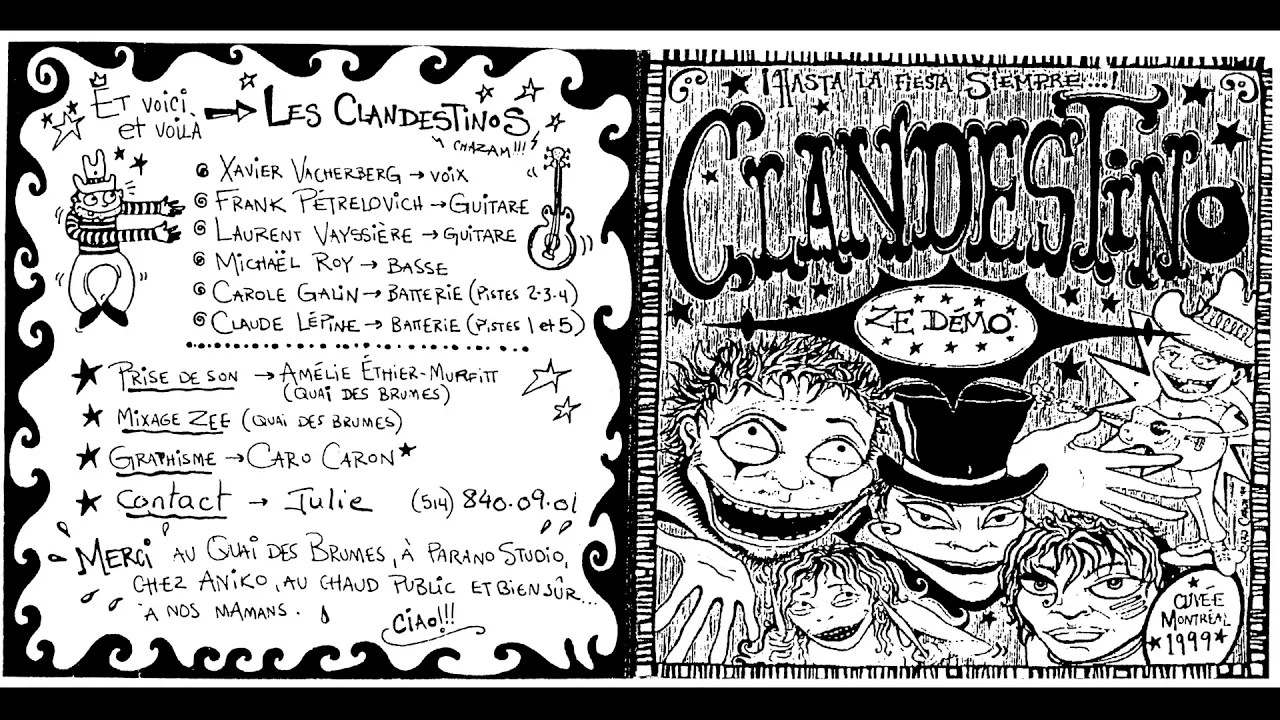 Et voici et voilà → Les Clandestinos
chazam!!!
Xavier Vacherberg → voix
Frank Pétrelovich → Guitare
Laurent Vayssière → Guitare
Michaël Roy → Basse
Carole Galin → Batterie (pistes 2.3.4)
Claude Lépine → Batterie (pistes 1 et 5)
Prise de son → Amélie Éthier-Murfitt
(Quai des Brumes)
Mixage Zee (Quai des Brumes)
Graphisme → Caro Caron
Contact → Julie (514) 840.09.01
Merci au Quai des Brumes, à Parano Studio,
chez Aniko, au chaud public et bien sûr...
à nos mamans.
Ciao!!!
¡Hasta la fiesta Siempre...!
Clandestino
Ze Démo
Cuvée
Montréal
1999